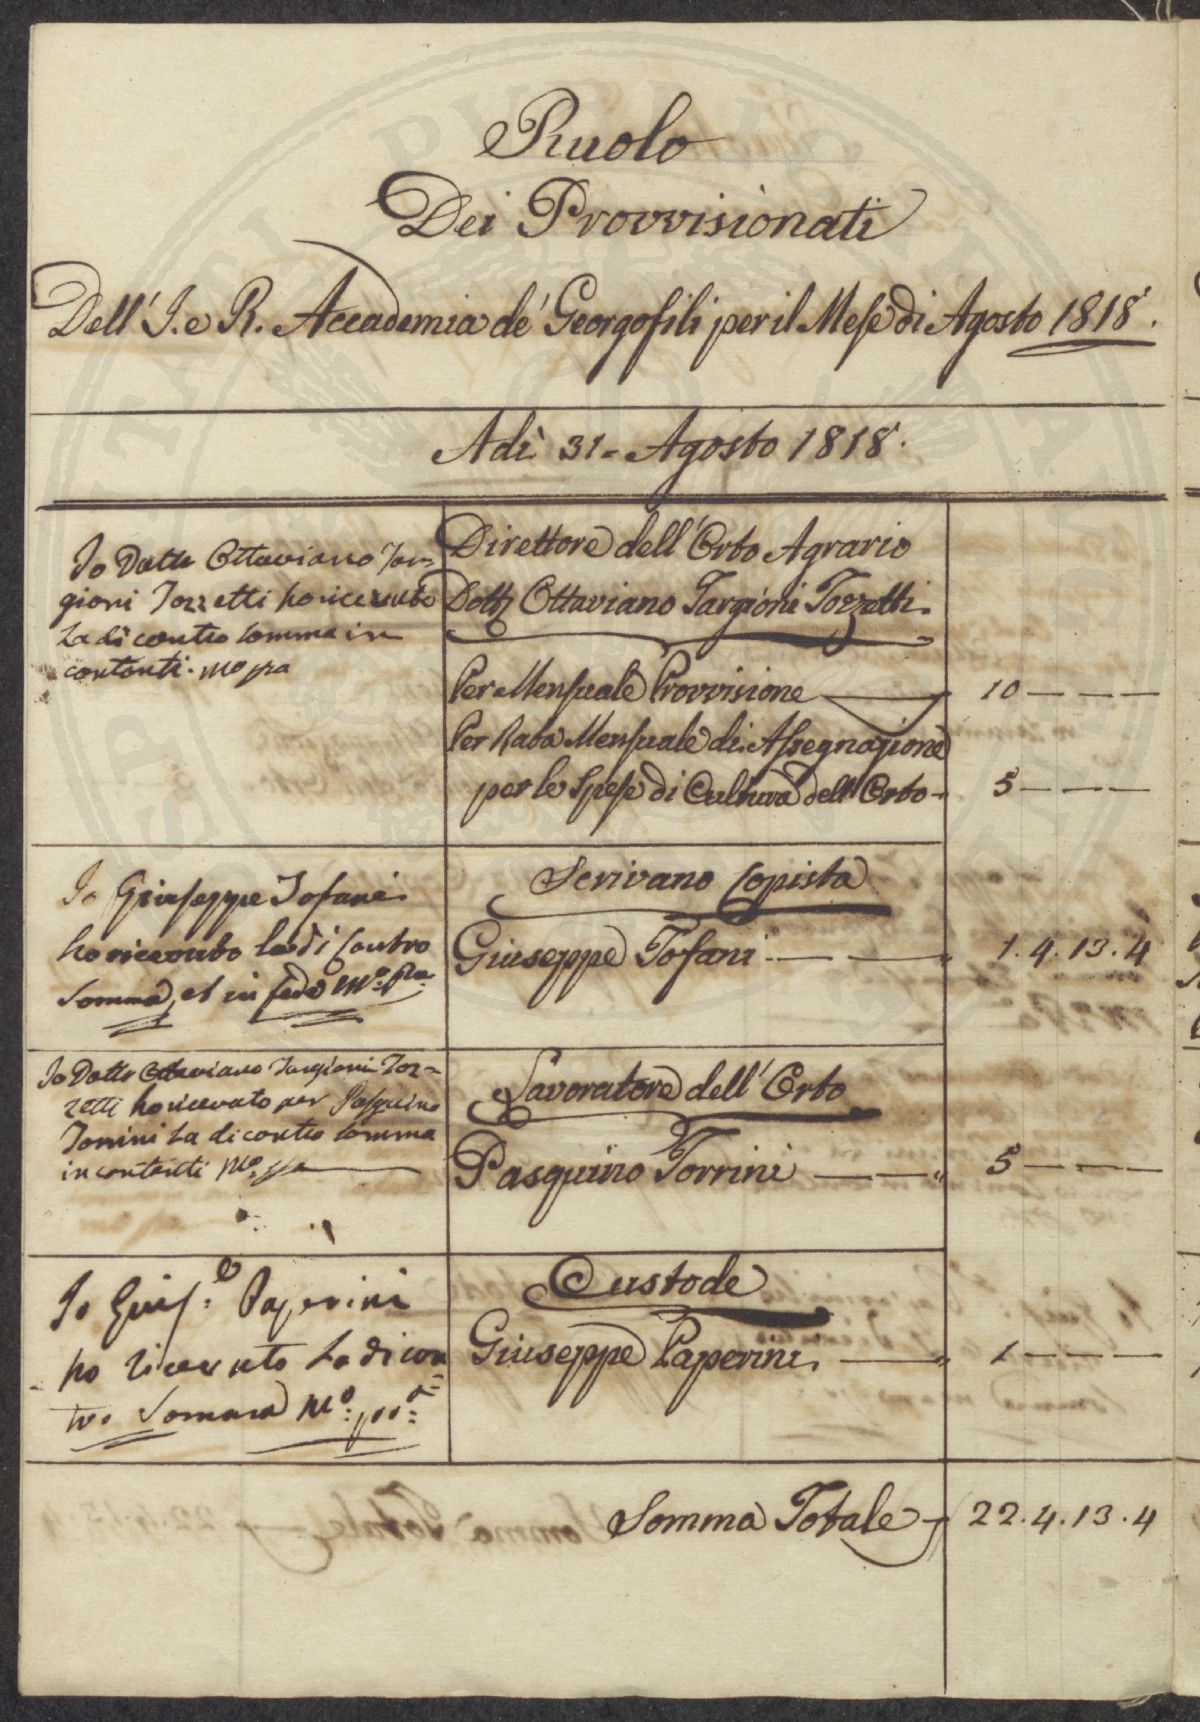 Ruolo
Dei Provvisionati
Dell' I. e R. Accademia de' Georgofili per il Mese di Agosto 1818.
Adì 31 - Agosto 1818.
Io Dott. Ottaviano Tar=
gioni Tozzetti ho ricevuto
La di contro somma in
contanti. Mo ppa
Direttore dell' Orto Agrario
Dott. Ottaviano Targioni Tozzetti.
Per Mensuale Provvisione 10 — — —
Per Rata Mensuale di Assegnazione
per le Spese di Cultura dell' Orto - 5 — — —
Io Giuseppe Tofani
ho ricevuto la di Contro
Somma, et in fede Mo: Ppa
Scrivano Copista
Giuseppe Tofani — — 1. 4. 13. 4
Io Dottr Ottaviano Targioni Toz=
zetti ho ricevuto per Pasquino
Torrini La di contro somma
in contanti Mo. ppa
Lavoratore dell' Orto
Pasquino Torrini — — 5 — — —
Io Gius.e Paperini
ho ricevuto La di con
tro Somma Mo: pp:a
Custode
Giuseppe Paperini. — 1 — — —
Somma Totale 22. 4. 13. 4